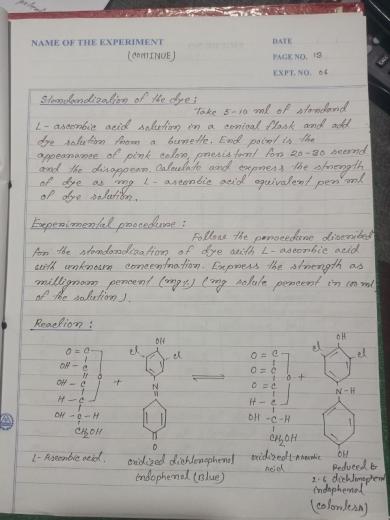 NAME OF THE EXPERIMENT
(CONTINUE)
DATE
PAGE NO. 13
EXPT. NO. 06
Standandization of the dye:
Take 5-10 ml of standand
L-asconbic acid solution in a conical flask and add
dye solution from a burette. End point is the
appearance of pink colon, pensistent fon 20-30 second
and the disappean. Calculate and expness the strength
of dye as mg L-asconbic acid equivalent pen ml
of dye solution.
Expenimental procedune:
Follow the procedune discnibed
fon the standandization of dye with L-asconbic acid
with unknown concentnation. Expness the stnength as
millignam pencent (mg%) (mg solute pencent in 100 ml
of the solution).
Reaction:
O = C
OH - C
OH - C
H - C
OH - C - H
CH2OH
O
+
OH
cl
cl
N
O
O = C
O = C
O = C
H - C
OH - C - H
CH2OH
O
+
OH
cl
cl
N-H
OH
L-Asconbic acid.
oxidized dichlonophenol
indophenol (Blue)
oxidized L-Asconbic
acid
Reduced
2-6 dichlonophenol
indophenol
(colonless)